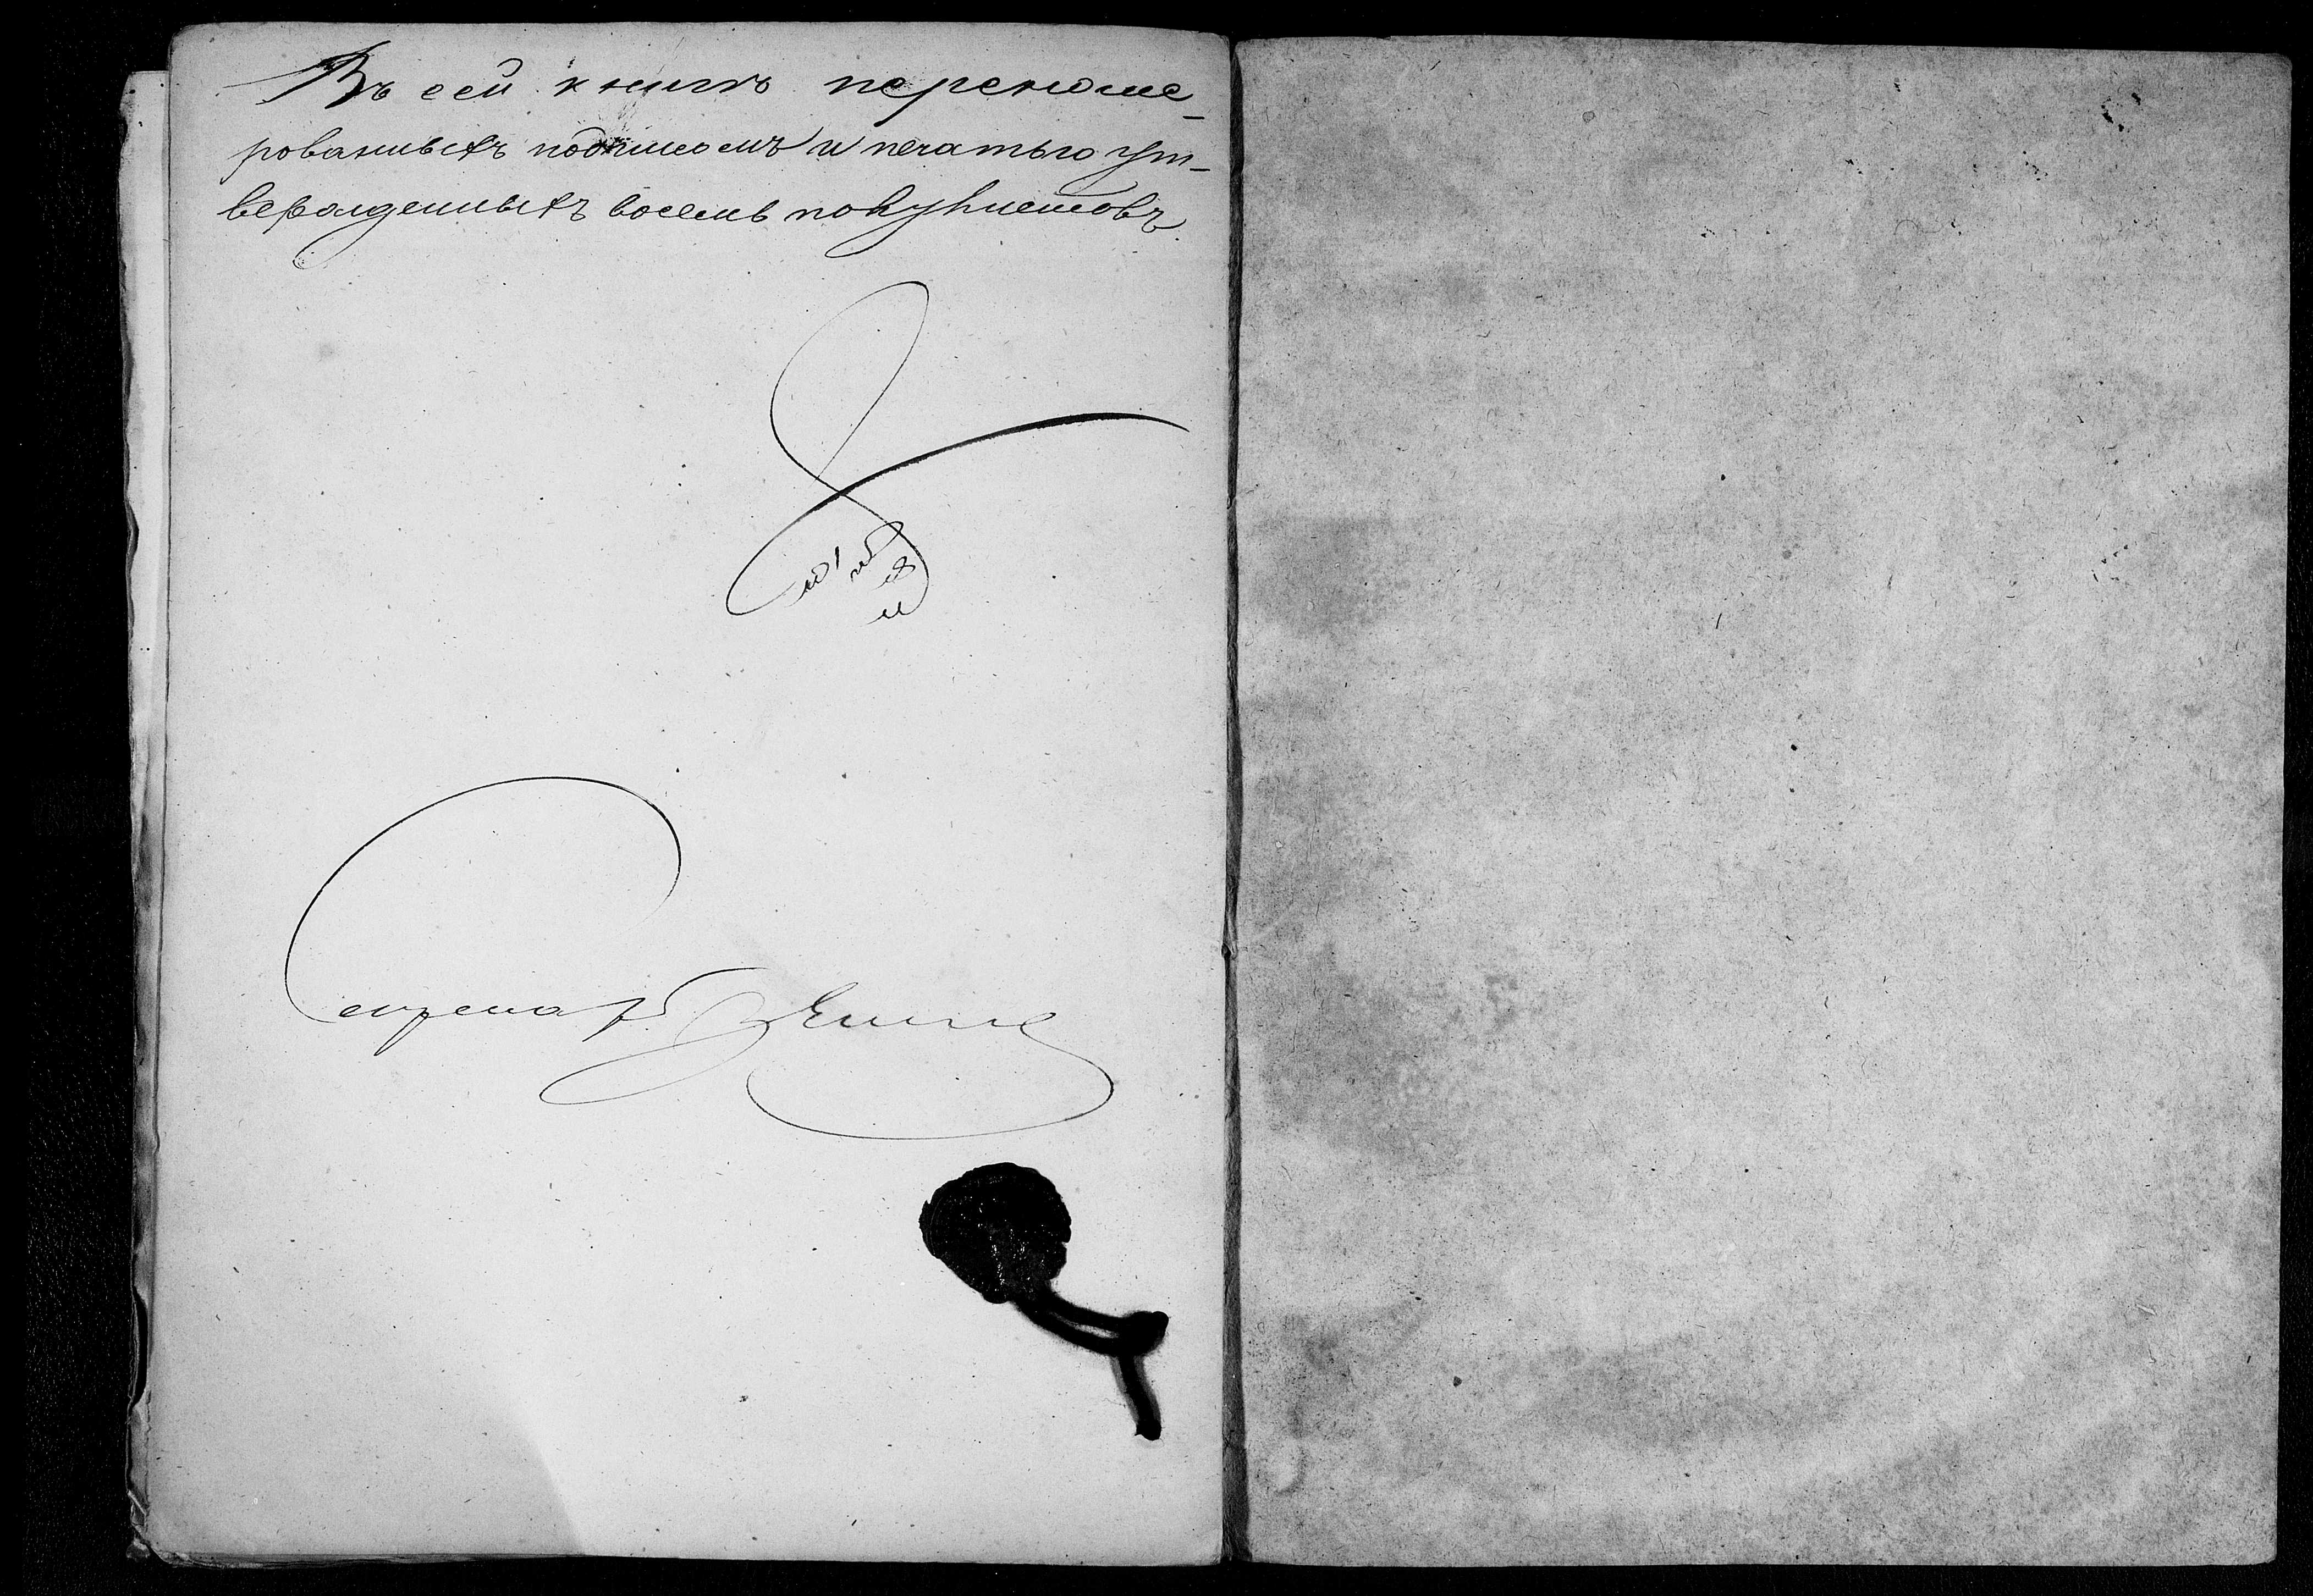 Въ сей книгѣ перенюме-
рованныхъ подписомъ и печатью ут-
вержденныхъ восемь полулистовъ
Секретарь